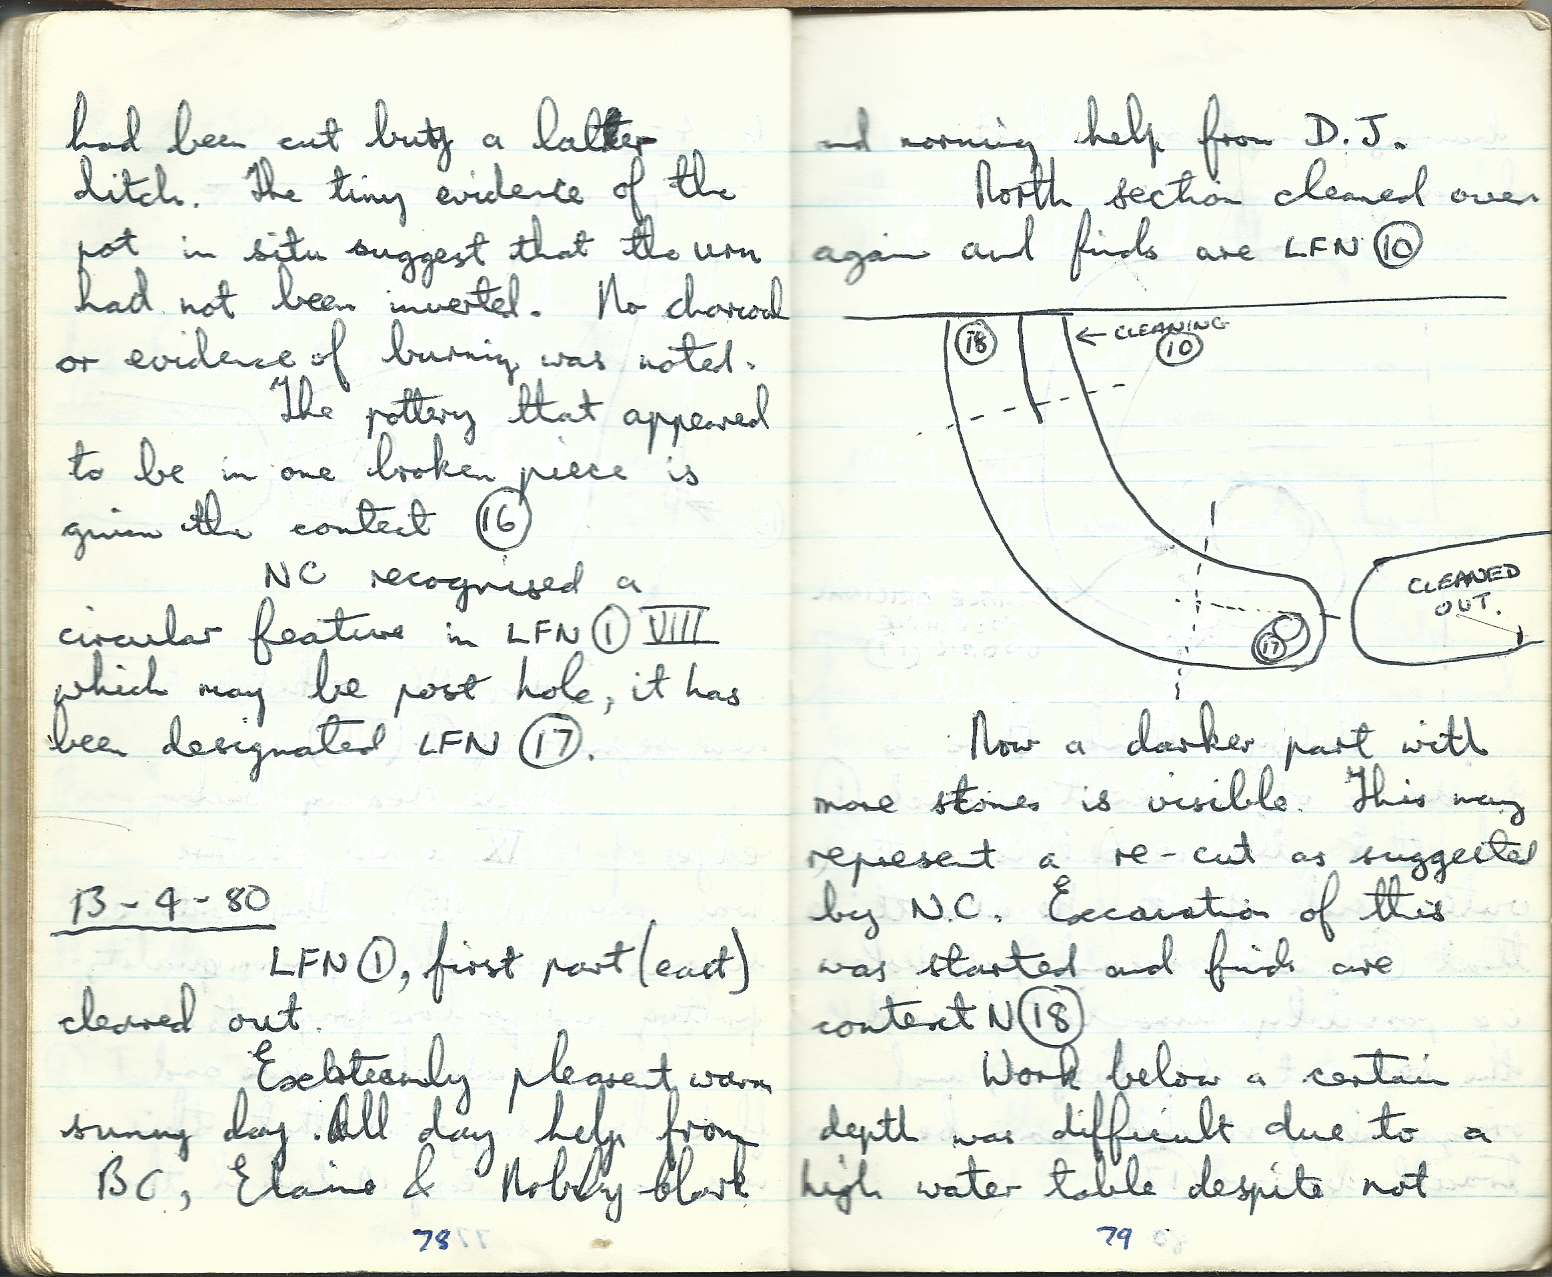 had been cut buty a latter
ditch. The tiny evidence of the
pot in situ suggest that the urn
had not been inverted. No charcoal
or evidence of burning was noted.
The pottery that appeared
to be in one broken piece is
given the context (16)
NC recognised a
circular feature in LFN (1) VIII
which may be post hole, it has
been designated LFN (17).
13-4-80
LFN (1), first part (east)
cleared out.
pleasent warm
sunny day. All day help from
BC, Elaine & Nobby Clark
78
and morning help from D.J.
North section cleaned over
again and finds are LFN (10)
(18)
← CLEANING
(10)
CLEANED
OUT.
(17)
Now a darker part with
more stones is visible. This may
represent a re-cut as suggested
by N.C. Excavation of this
was started and finds are
context N (18)
Work below a certain
depth was difficult due to a
high water table despite not
79